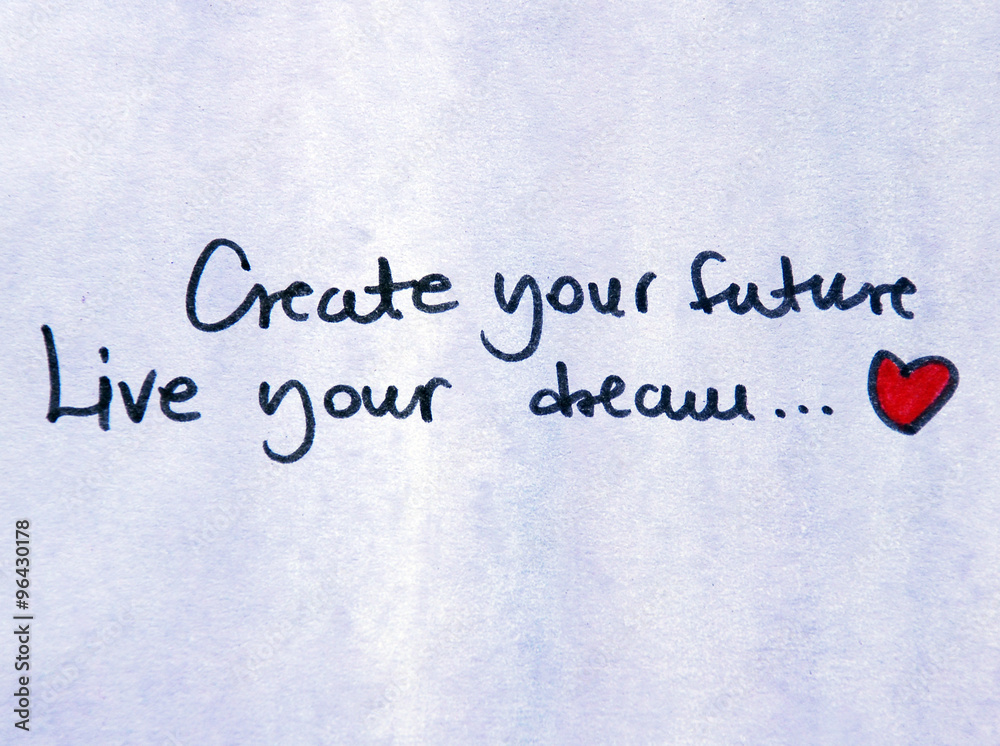 Create your future
Live your dream...
Adobe Stock | #96430178